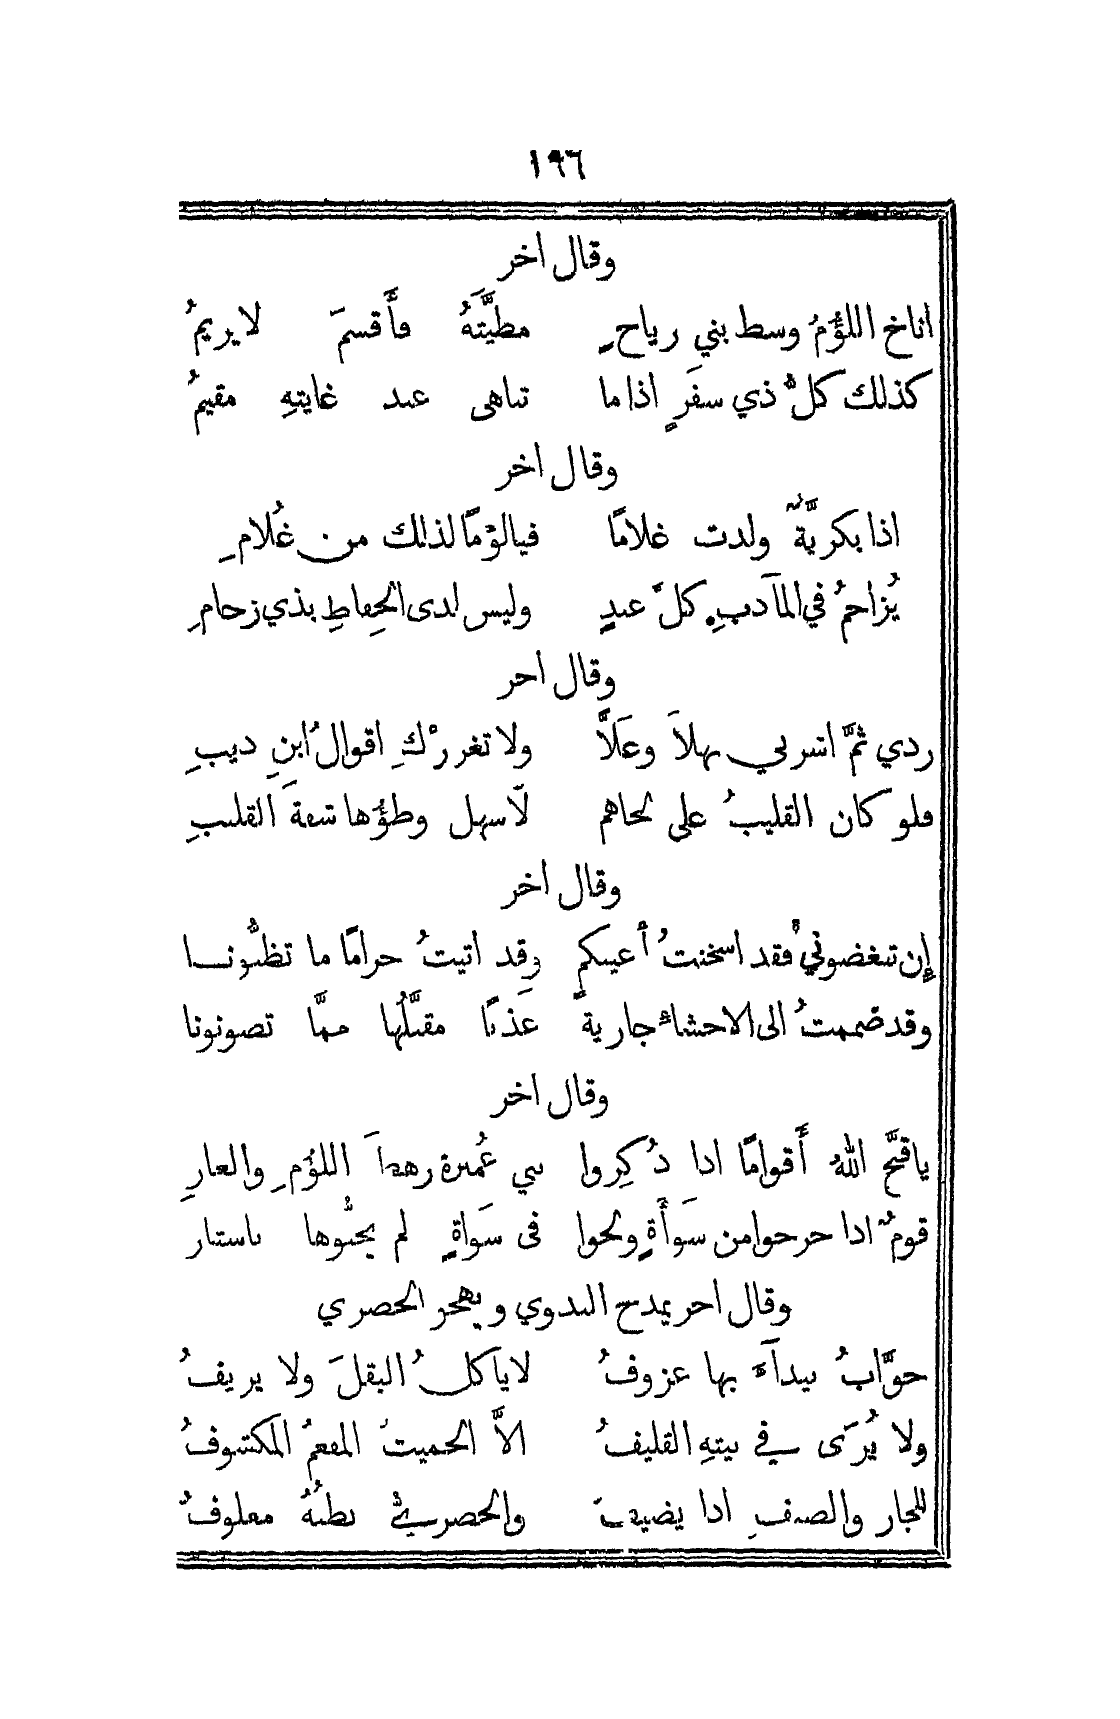 ١٩٦
وقال اخر
اناخ اللؤمُ وسط بني رياحٍ مطيَّتَهُ فأَقسمَ لا يريمُ
كذلك كلُّ ذي سفَرٍ اذا ما تناهى عند غايتهِ مقيمُ
وقال اخر
اذا بكريَّةٌ ولدت غلامًا فيا لؤمًا لذلك من غُلامِ
يُزاحمُ في المآدبِ كلَّ عبدٍ وليس لدى الحِفاظِ بذي زحامِ
وقال اخر
ردي ثمَّ اشربي نهلاً وعَلاًّ ولا تغررْكِ اقوالُ ابنِ ذيبِ
فلو كان القليبُ على لحاهم لَاسهل وطؤُها شفةَ القليبِ
وقال اخر
إِن تبغضوني فقد اسخنتُ أَعينكم وقد اتيتُ حرامًا ما تظنُّونا
وقد ضممتُ الى الاحشاءِ جاريةً عَذبًا مقبَّلُها ممَّا تصونونا
وقال اخر
يا قبَّح اللهُ أَقوامًا اذا ذُكِروا بني عُميرة رهطَ اللؤمِ والعارِ
قومٌ اذا خرجوا من سَوأَةٍ ولجوا في سَوأَةٍ لم يجنُّوها باستارِ
وقال اخر يمدح البدوي ويهجو الحضري
جوَّابُ بيدآءَ بها عزوفُ لا ياكلُ البقلَ ولا يريفُ
ولا يُرَى في بيتهِ القليفُ الاَّ الحميتُ المفعمُ المكشوفُ
للجارِ والضيفِ اذا يضيفُ والحضريُّ بطنُهُ معلوفُ